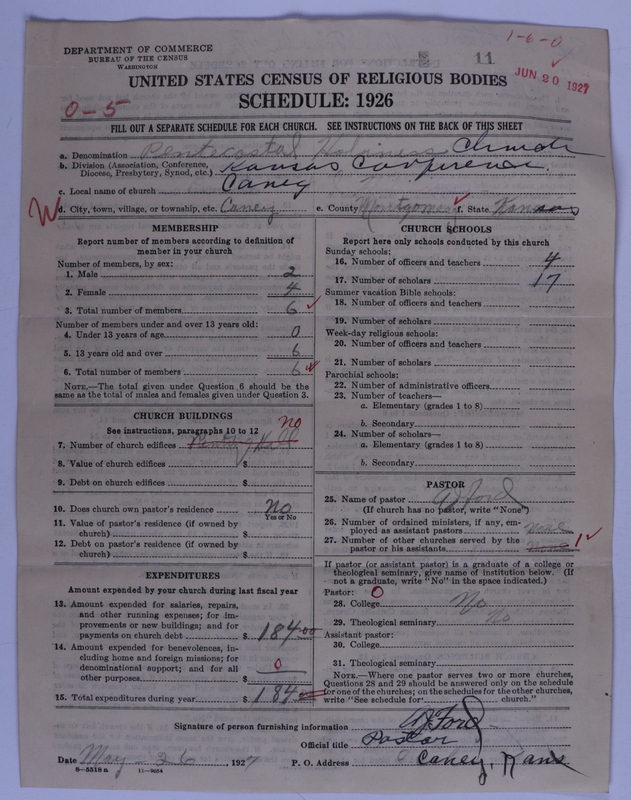 DEPARTMENT OF COMMERCE
BUREAU OF THE CENSUS
WASHINGTON
11
1-6-0
JUN 20 1927
UNITED STATES CENSUS OF RELIGIOUS BODIES
SCHEDULE: 1926
0-5
FILL OUT A SEPARATE SCHEDULE FOR EACH CHURCH. SEE INSTRUCTIONS ON THE BACK OF THIS SHEET
a. Denomination Pentecostal Holiness Church
b. Division (Association, Conference, Diocese, Presbytery, Synod, etc.) Kansas Conference.
c. Local name of church Caney
W d. City, town, village, or township, etc. Caney e. County Montgomery f. State Kansas
MEMBERSHIP
Report number of members according to definition of
member in your church
Number of members, by sex:
1. Male 2
2. Female 4
3. Total number of members 6
Number of members under and over 13 years old:
4. Under 13 years of age 0
5. 13 years old and over 6
6. Total number of members 6
NOTE.—The total given under Question 6 should be
same as the total of males and females given under Question 3.
CHURCH BUILDINGS
See instructions, paragraphs 10 to 12 no
7. Number of church edifices Hall
8. Value of church edifices $
9. Debt on church edifices $
10. Does church own pastor's residence No
Yes or No
11. Value of pastor's residence (if owned by
church) $
12. Debt on pastor's residence (if owned by
church) $
EXPENDITURES
Amount expended by your church during last fiscal year
13. Amount expended for salaries, repairs,
and other running expenses; for im-
provements or new buildings; and for
payments on church debt $ 184.00
14. Amount expended for benevolences, in-
cluding home and foreign missions; for
denominational support; and for all
other purposes $ 0
15. Total expenditures during year $ 184
CHURCH SCHOOLS
Report here only schools conducted by this church
Sunday schools:
16. Number of officers and teachers 4
17. Number of scholars 17
Summer vacation Bible schools:
18. Number of officers and teachers
19. Number of scholars
Week-day religious schools:
20. Number of officers and teachers
21. Number of scholars
Parochial schools:
22. Number of administrative officers
23. Number of teachers—
a. Elementary (grades 1 to 8)
b. Secondary
24. Number of scholars—
a. Elementary (grades 1 to 8)
b. Secondary
PASTOR
25. Name of pastor Ford
(If church has no pastor, write "None")
26. Number of ordained ministers, if any, em-
ployed as assistant pastors None
27. Number of other churches served by the
pastor or his assistants 1
If pastor (or assistant pastor) is a graduate of a college or
theological seminary, give name of institution below. (If
not a graduate, write "No" in the space indicated.)
Pastor: 0
28. College No
29. Theological seminary No
Assistant pastor:
30. College
31. Theological seminary
NOTE.—Where one pastor serves two or more churches,
Questions 28 and 29 should be answered only on the schedule
for one of the churches; on the schedules for the other churches,
write "See schedule for church."
Signature of person furnishing information Ford
Official title Pastor
Date May 26, 1927 P. O. Address Caney, Kans
8—5518 a 11—9054